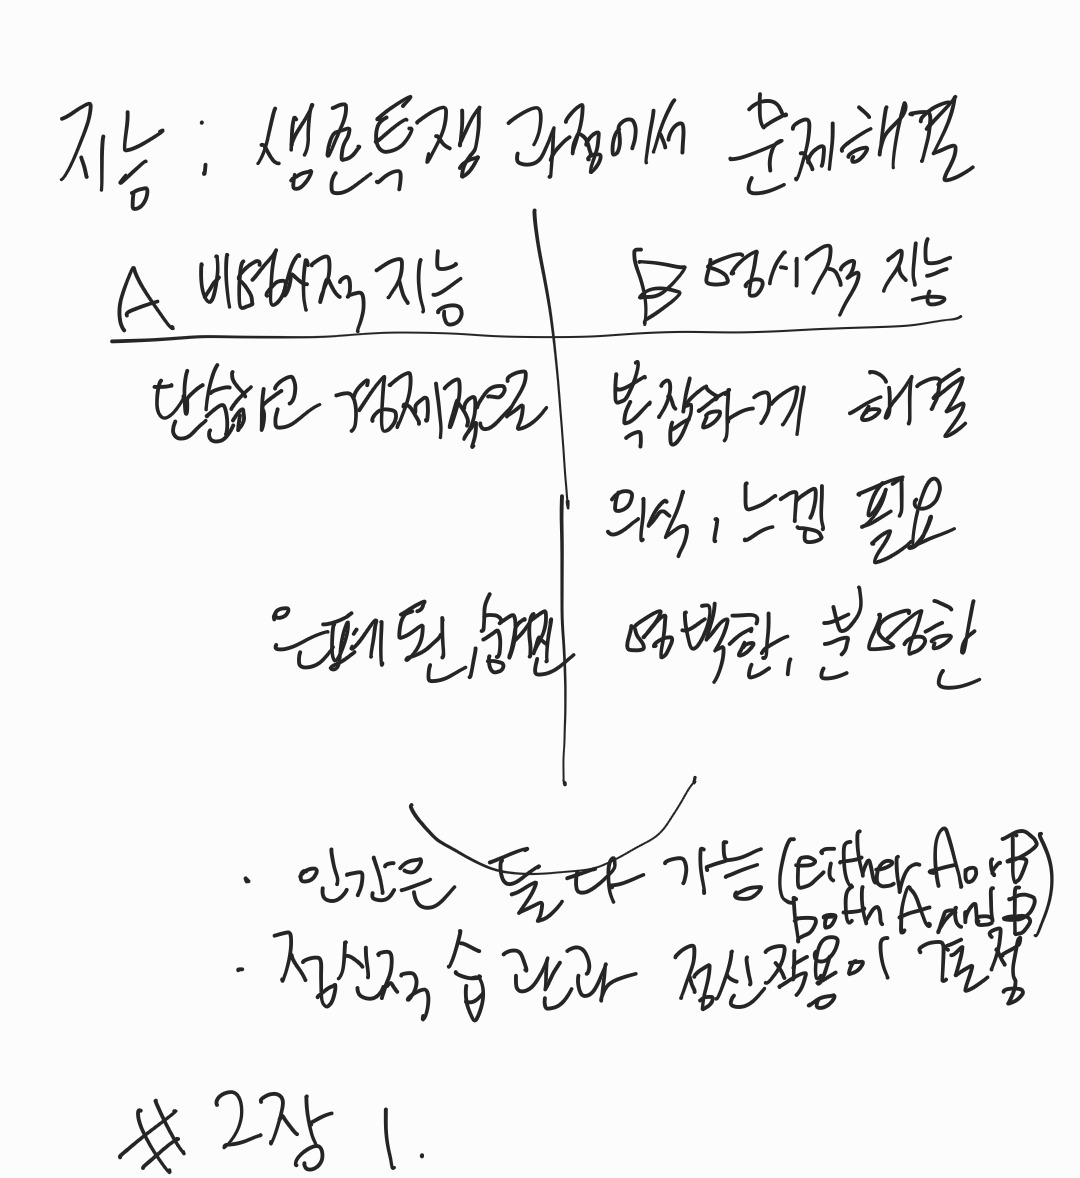 지능 : 생존투쟁 과정에서 문제해결
A 비명시적 지능
B 명시적 지능
단순하고 경제적으로
복잡하게 해결
의식, 느낌 필요
은폐된, 숨겨진
명백한, 분명한
· 인간은 둘 다 가능 (either A or B
both A and B)
· 정신적 습관과 정신작용이 결정
# 2장 1.